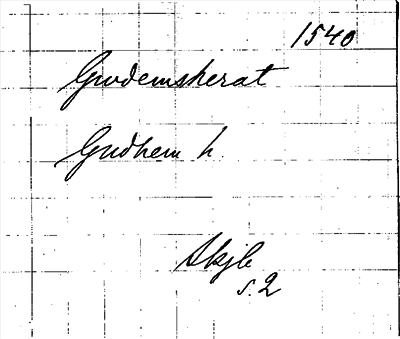 1540
Gwdemsherat
Gudhem h.
Skjb
s. 2